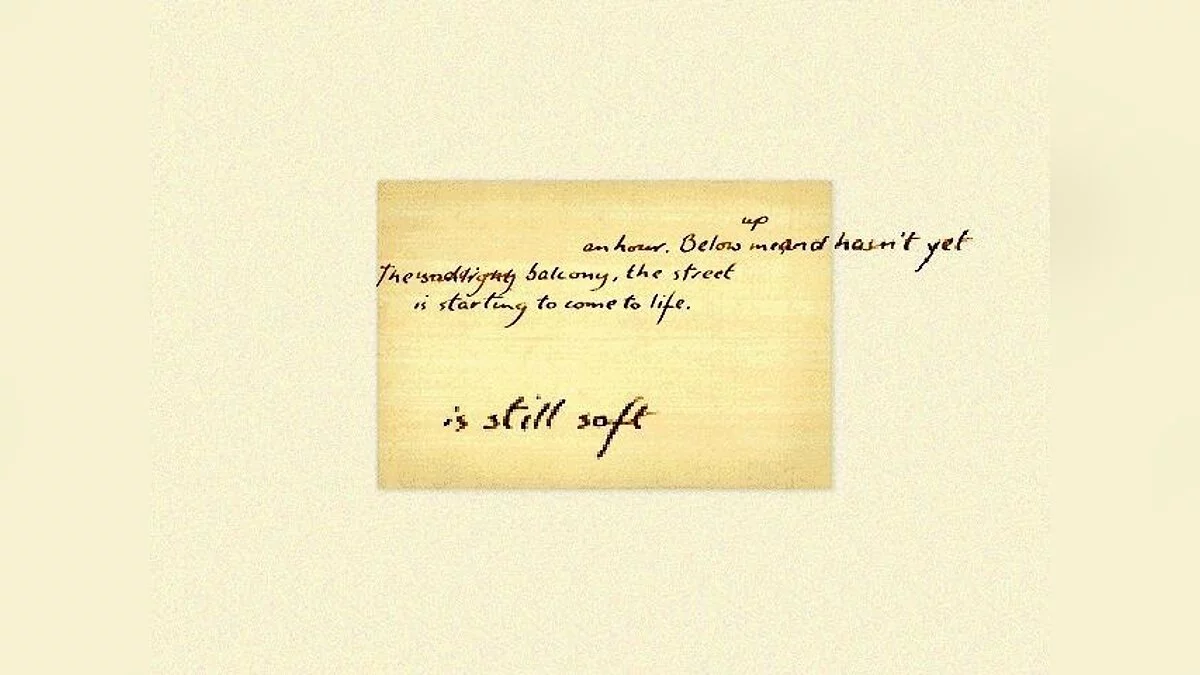 up
an hour. Below me and hasn't yet
The balcony, the street
is starting to come to life.
is still soft